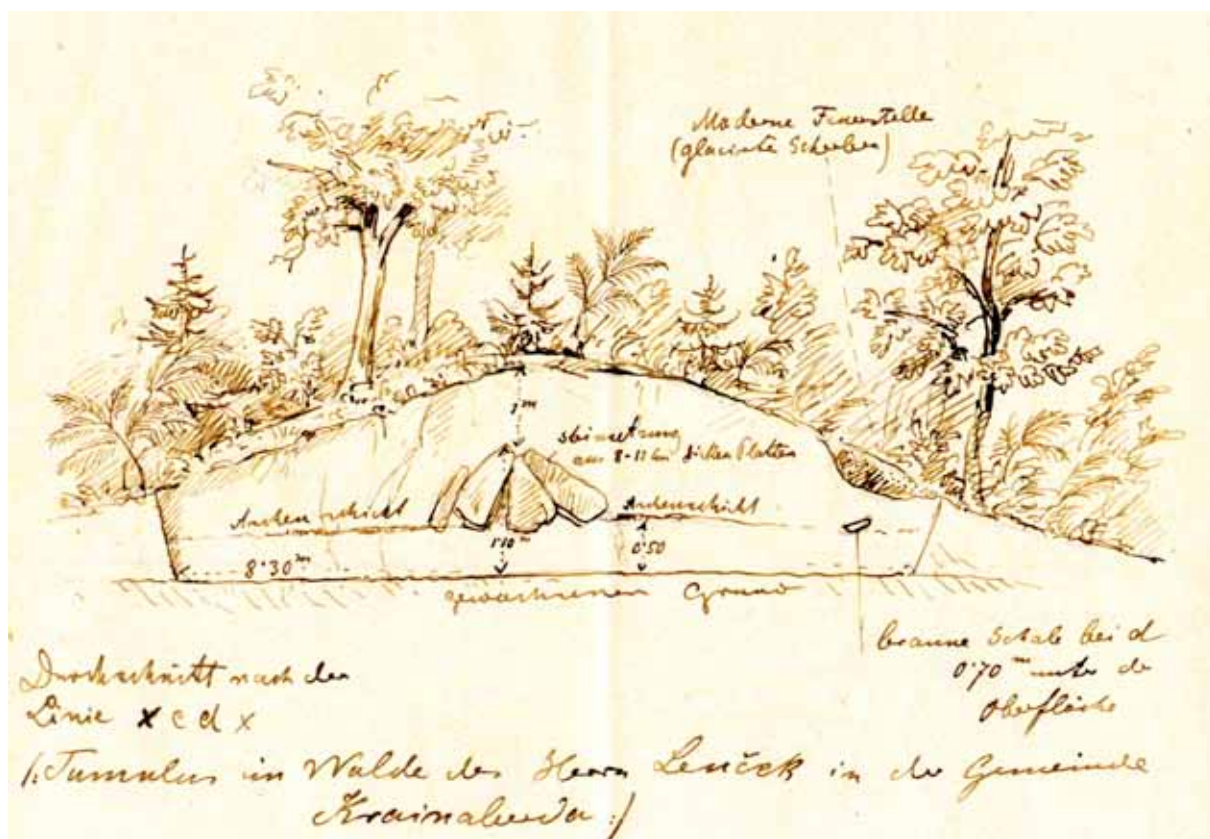 Moderne Feuerstelle
(glacirte Scherben)
1 m
Steinsetzung
aus 8-11 cm dicken Platten
Aschenschicht
Aschenschicht
1·10 m
0·50
8·30 m
gewachsener Grund
braune Schale bei d
0·70 m unter der
Oberfläche
Durchschnitt nach der
Linie x c d x
/: Tumulus im Walde des Herrn Lenček in der Gemeinde
:/